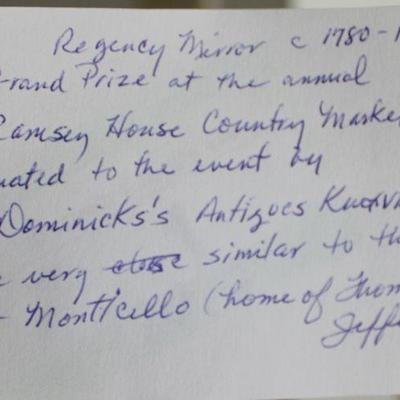 Regency Mirror c 1780-1
Grand Prize at the annual
Ramsey House Country Market
nated to the event by
Dominicks's Antiques Knoxv
e very close similar to th
Monticello (home of Thom
Jeff